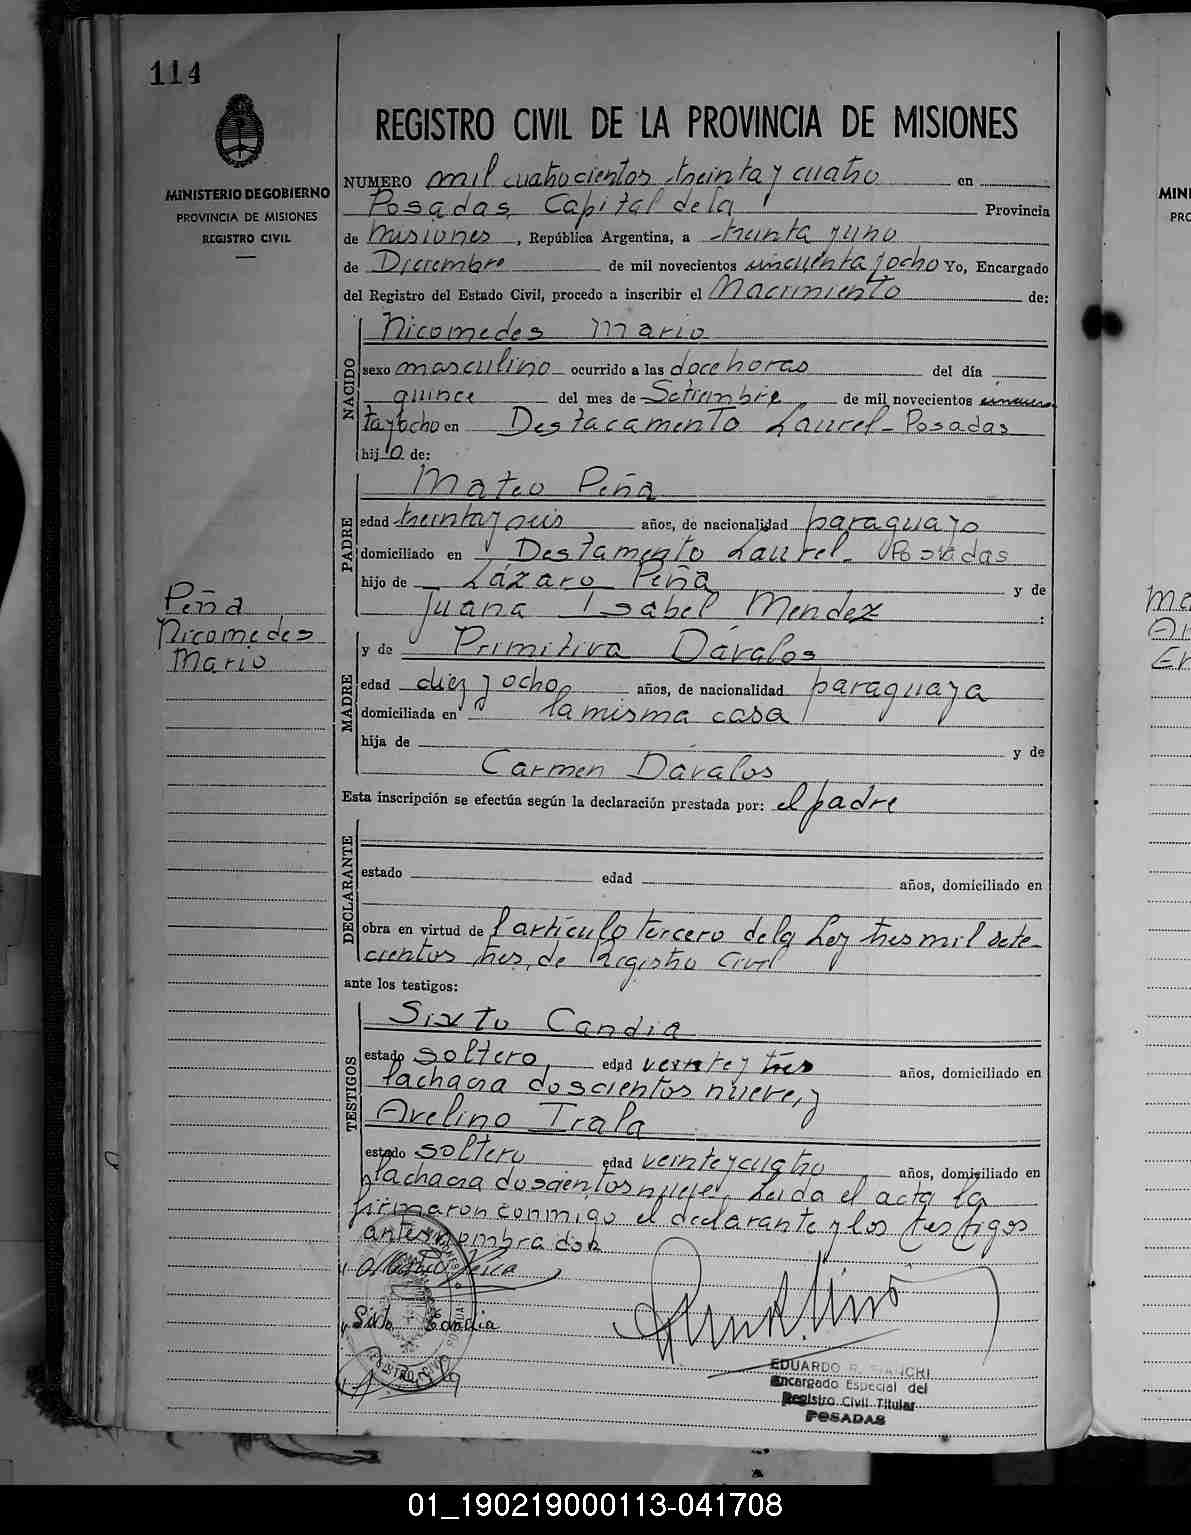 114
REGISTRO CIVIL DE LA PROVINCIA DE MISIONES
MINISTERIO DE GOBIERNO
PROVINCIA DE MISIONES
REGISTRO CIVIL
NUMERO mil cuatrocientos treinta y cuatro en
Posadas, Capital de la Provincia
de Misiones, República Argentina, a treinta y uno
de Diciembre de mil novecientos cincuenta y ocho Yo, Encargado
del Registro del Estado Civil, procedo a inscribir el Nacimiento de:
NACIDO
Nicomedes Mario
sexo masculino ocurrido a las doce horas del día
quince del mes de Setiembre de mil novecientos cincuen
ta y ocho en Destacamento Laurel - Posadas
hijo de:
PADRE
Mateo Peña
edad treinta y seis años, de nacionalidad paraguayo
domiciliado en Destamento Laurel - Posadas
hijo de Lázaro Peña y de
Juana Isabel Mendez :
Peña
Nicomedes
Mario
MADRE
y de Primitiva Dávalos
edad diez y ocho años, de nacionalidad paraguaya
domiciliada en la misma casa
hija de y de
Carmen Dávalos
Esta inscripción se efectúa según la declaración prestada por: el padre
DECLARANTE
estado edad años, domiciliado en
obra en virtud de l artículo tercero de la Ley tres mil sete-
cientos tres, de Registro Civil
ante los testigos:
TESTIGOS
Sixto Candia
estado soltero, edad veinte y tres años, domiciliado en
la chacra doscientos nueve, y
Avelino Irala
estado soltero edad veinte y cuatro años, domiciliado en
la chacra doscientos nueve. Leida el acta la
firmaron conmigo el declarante y los testigos
antes nombrados.
Sixto Candia
EDUARDO R. BIANCHI
Encargado Especial del
Registro Civil Titular
POSADAS
MINI
PRO
Me
An
Er
01_190219000113-041708